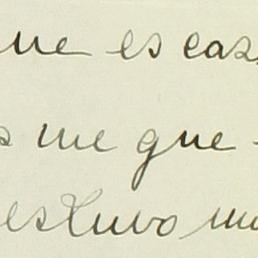 ue es cas
s me que
estuvo mu